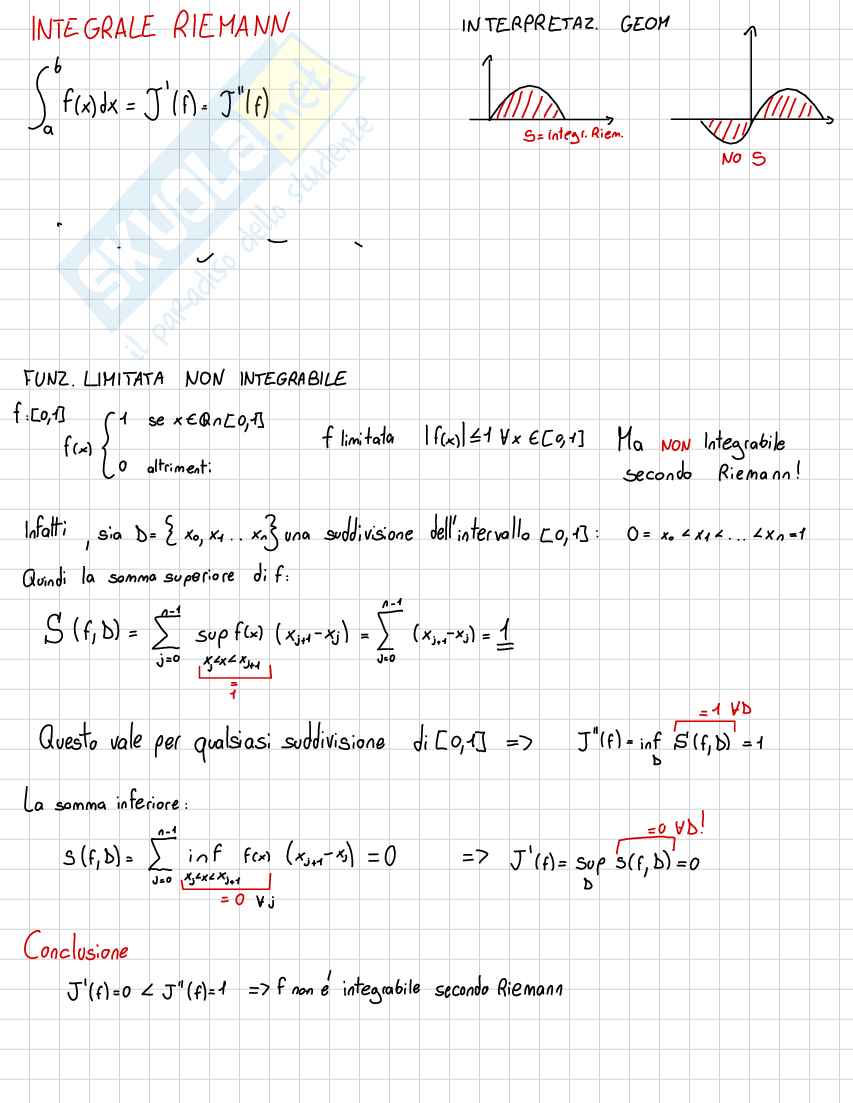 INTEGRALE RIEMANN
∫_a^b f(x)dx = J'(f) = J''(f)
INTERPRETAZ. GEOM
S= Integr. Riem.
NO S
SKUOLA.net
il paradiso dello studente
FUNZ. LIMITATA NON INTEGRABILE
f:[0,1]
f(x) { 1 se x∈Q∩[0,1]
0 altrimenti
f limitata |f(x)|≤1 ∀x∈[0,1] Ma NON Integrabile
secondo Riemann!
Infatti, sia D={x₀, x₁ .. xₙ} una suddivisione dell'intervallo [0,1]: 0= x₀ < x₁ < ... < xₙ=1
Quindi la somma superiore di f:
S(f,D) = ∑_{j=0}^{n-1} sup_{xⱼ<x<xⱼ₊₁} f(x) (xⱼ₊₁-xⱼ) = ∑_{j=0}^{n-1} (xⱼ₊₁-xⱼ) = 1
=
1
=1 ∀D
Questo vale per qualsiasi suddivisione di [0,1] => J''(f) = inf_D S(f,D) = 1
La somma inferiore:
=0 ∀D!
s(f,D) = ∑_{j=0}^{n-1} inf_{xⱼ<x<xⱼ₊₁} f(x) (xⱼ₊₁-xⱼ) = 0 => J'(f) = sup_D s(f,D) = 0
= 0 ∀j
Conclusione
J'(f)=0 < J''(f)=1 => f non é integrabile secondo Riemann